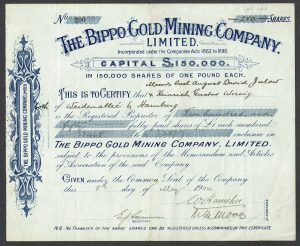 No
200 SHARES.
THE BIPPO GOLD MINING COMPANY,
LIMITED.
Incorporated under the Companies Acts 1862 to 1898.
CAPITAL £150,000.
IN 150,000 SHARES OF ONE POUND EACH.
THIS IS TO CERTIFY that
& Heinrich Gustav
both of Hamburg
is the Registered Proprietor of Two hundred
fully paid shares of £1 each numbered
inclusive in
THE BIPPO GOLD MINING COMPANY, LIMITED.
subject to the provisions of the Memorandum and Articles
of Association of the said Company.
GIVEN under the Common Seal of the Company
this day of May
SECRETARY
N.B. No Transfer of the above Shares can be registered unless accompanied by this Certificate